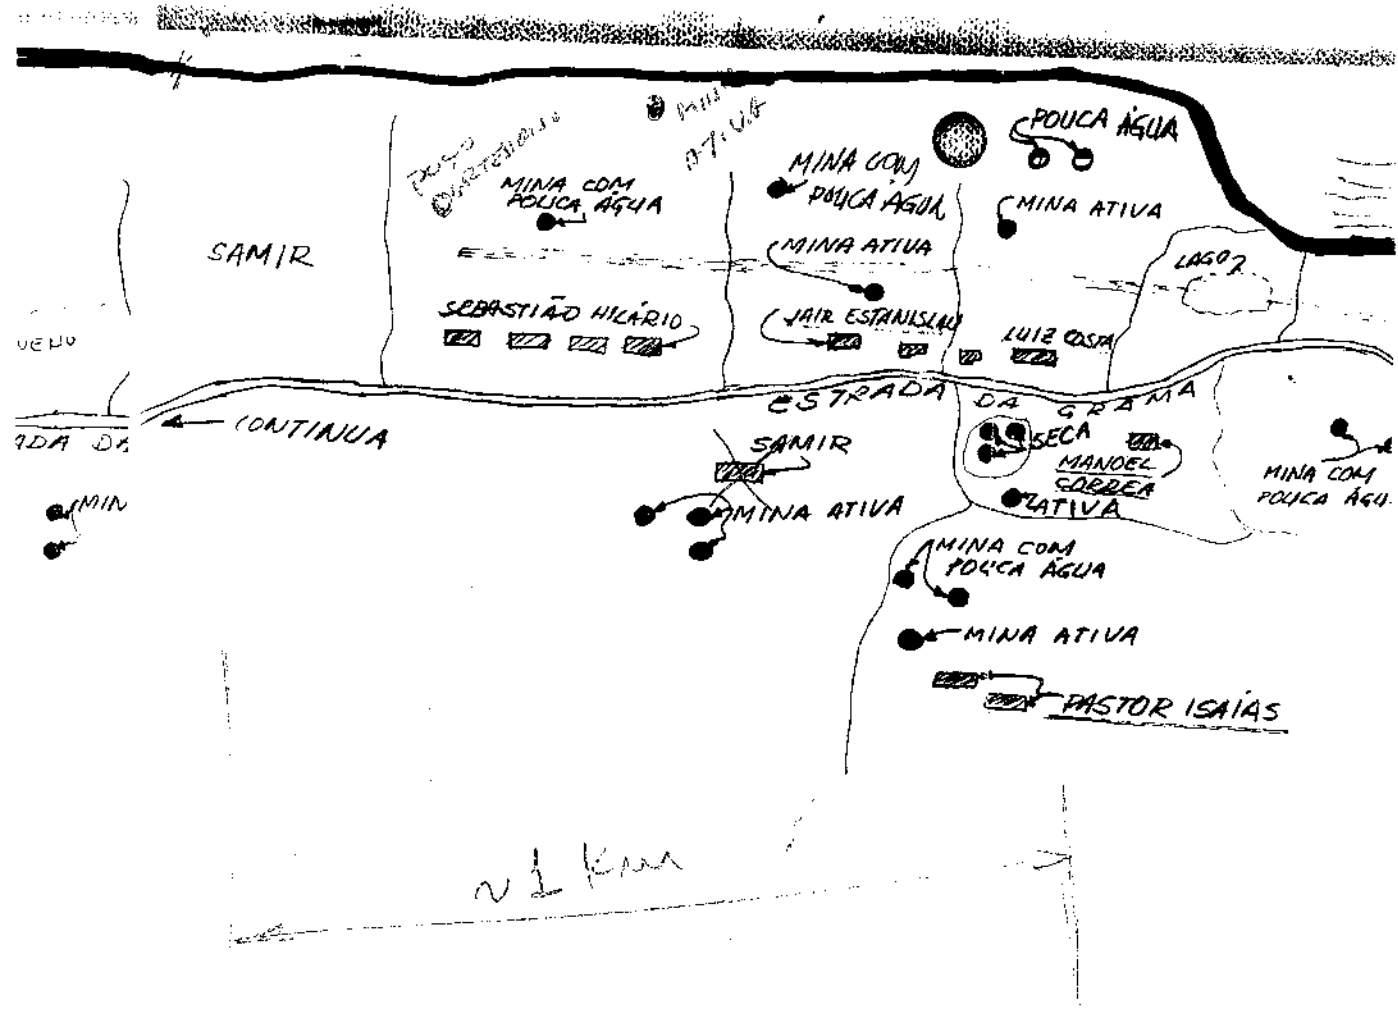 POUCA ÁGUA
POÇO
ARTESIANO
MINA
ATIVA
MINA COM
POUCA ÁGUA
MINA COM
POUCA ÁGUA
MINA ATIVA
SAMIR
MINA ATIVA
LAGO 2
SEBASTIÃO HILÁRIO
JAIR ESTANISLAU
LUIZ COSTA
UENO
ESTRADA DA GRAMA
CONTINUA
ADA DA
SAMIR
SECA
MANOEL
CORREA
MINA COM
POUCA ÁGU
MIN
MINA ATIVA
ATIVA
MINA COM
POUCA ÁGUA
MINA ATIVA
PASTOR ISAÍAS
~1 Km